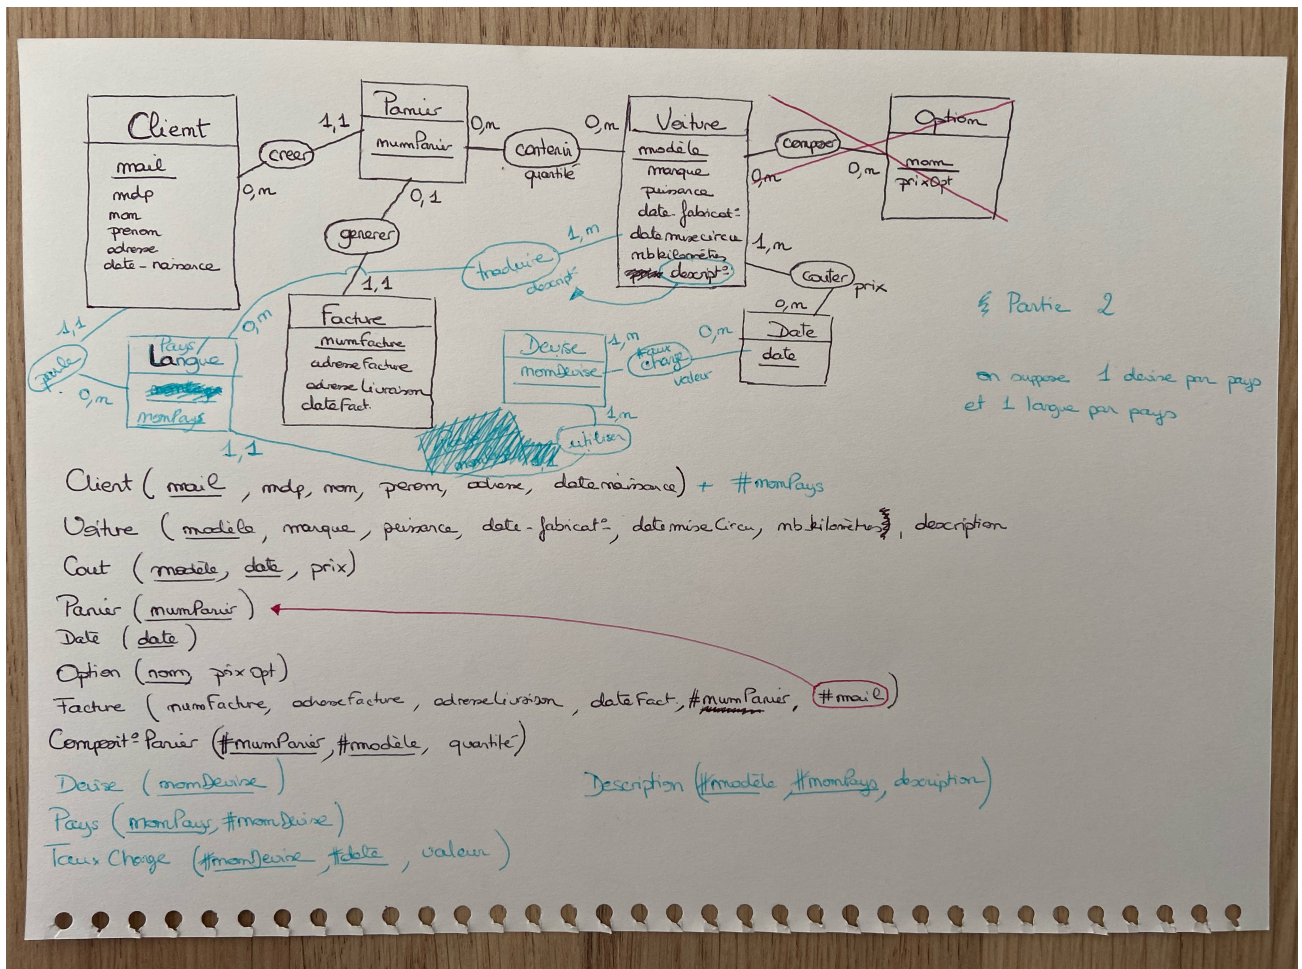 Client
mail
mdp
nom
prenom
adresse
date-naissance
0,n
creer
1,1
Panier
numPanier
0,n
contenir
quantité
0,n
Voiture
modèle
marque
puissance
date-fabricat°
datemisecircu
nbkilomètres
descript°
0,n
composer
0,n
Option
nom
prixOpt
0,1
generer
1,1
Facture
numFacture
adresseFacture
adresseLivraison
dateFact.
1,n
traduire
descript°
0,n
1,n
couter
prix
0,n
Date
date
1,1
parle
0,n
Pays
Langue
nomPays
1,1
Devise
nomDevise
1,n
taux
change
valeur
0,n
1,n
utiliser
Partie 2
on suppose 1 devise par pays
et 1 langue par pays
Client ( mail , mdp, nom, perom, adresse, datenaissance) + #nomPays
Voiture ( modèle, marque, puissance, date-fabricat°, datemiseCircu, nbkilomètres, description
Cout ( modèle, date, prix)
Panier ( numPanier )
Date ( date )
Option ( nom, prixOpt)
Facture ( numFacture, adresseFacture, adresseLivraison, dateFact, #numPanier, #mail )
Composit° Panier (#numPanier, #modèle, quantité)
Devise ( nomDevise )
Description (#modèle, #nomPays, description)
Pays ( nomPays, #nomDevise)
Taux Change (#nomDevise, #date, valeur )